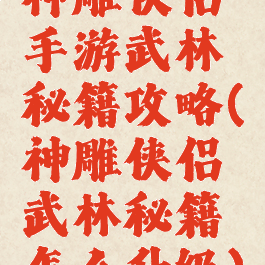 神雕侠侣
手游武林
秘籍攻略(
神雕侠侣
武林秘籍
怎么升级)